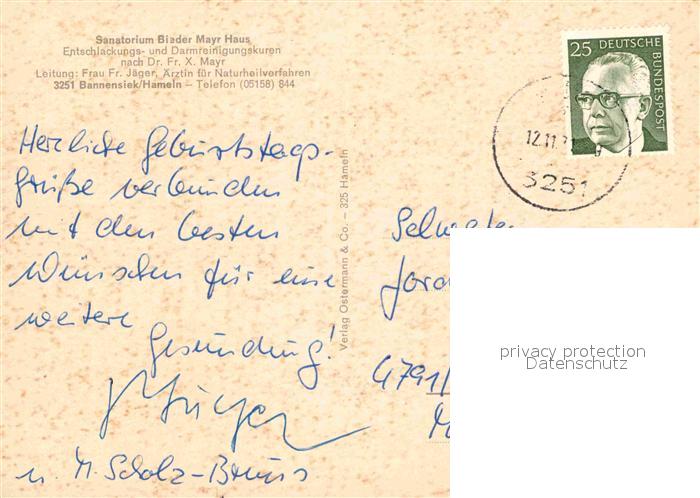 Sanatorium Bieder Mayr Haus
Entschlackungs- und Darmreinigungskuren
nach Dr. Fr. X. Mayr
Leitung: Frau Fr. Jäger, Ärztin für Naturheilverfahren
3251 Bannensiek/Hameln – Telefon (05158) 844
25 DEUTSCHE
BUNDESPOST
12.11.
3251
Herzliche Geburtstags-
grüße verbunden
mit den besten
Wünschen für eine
weitere
Gesundung!
u. M. Scholz-Bruns
Verlag Ostermann & Co. – 325 Hameln
4791/
privacy protection
Datenschutz